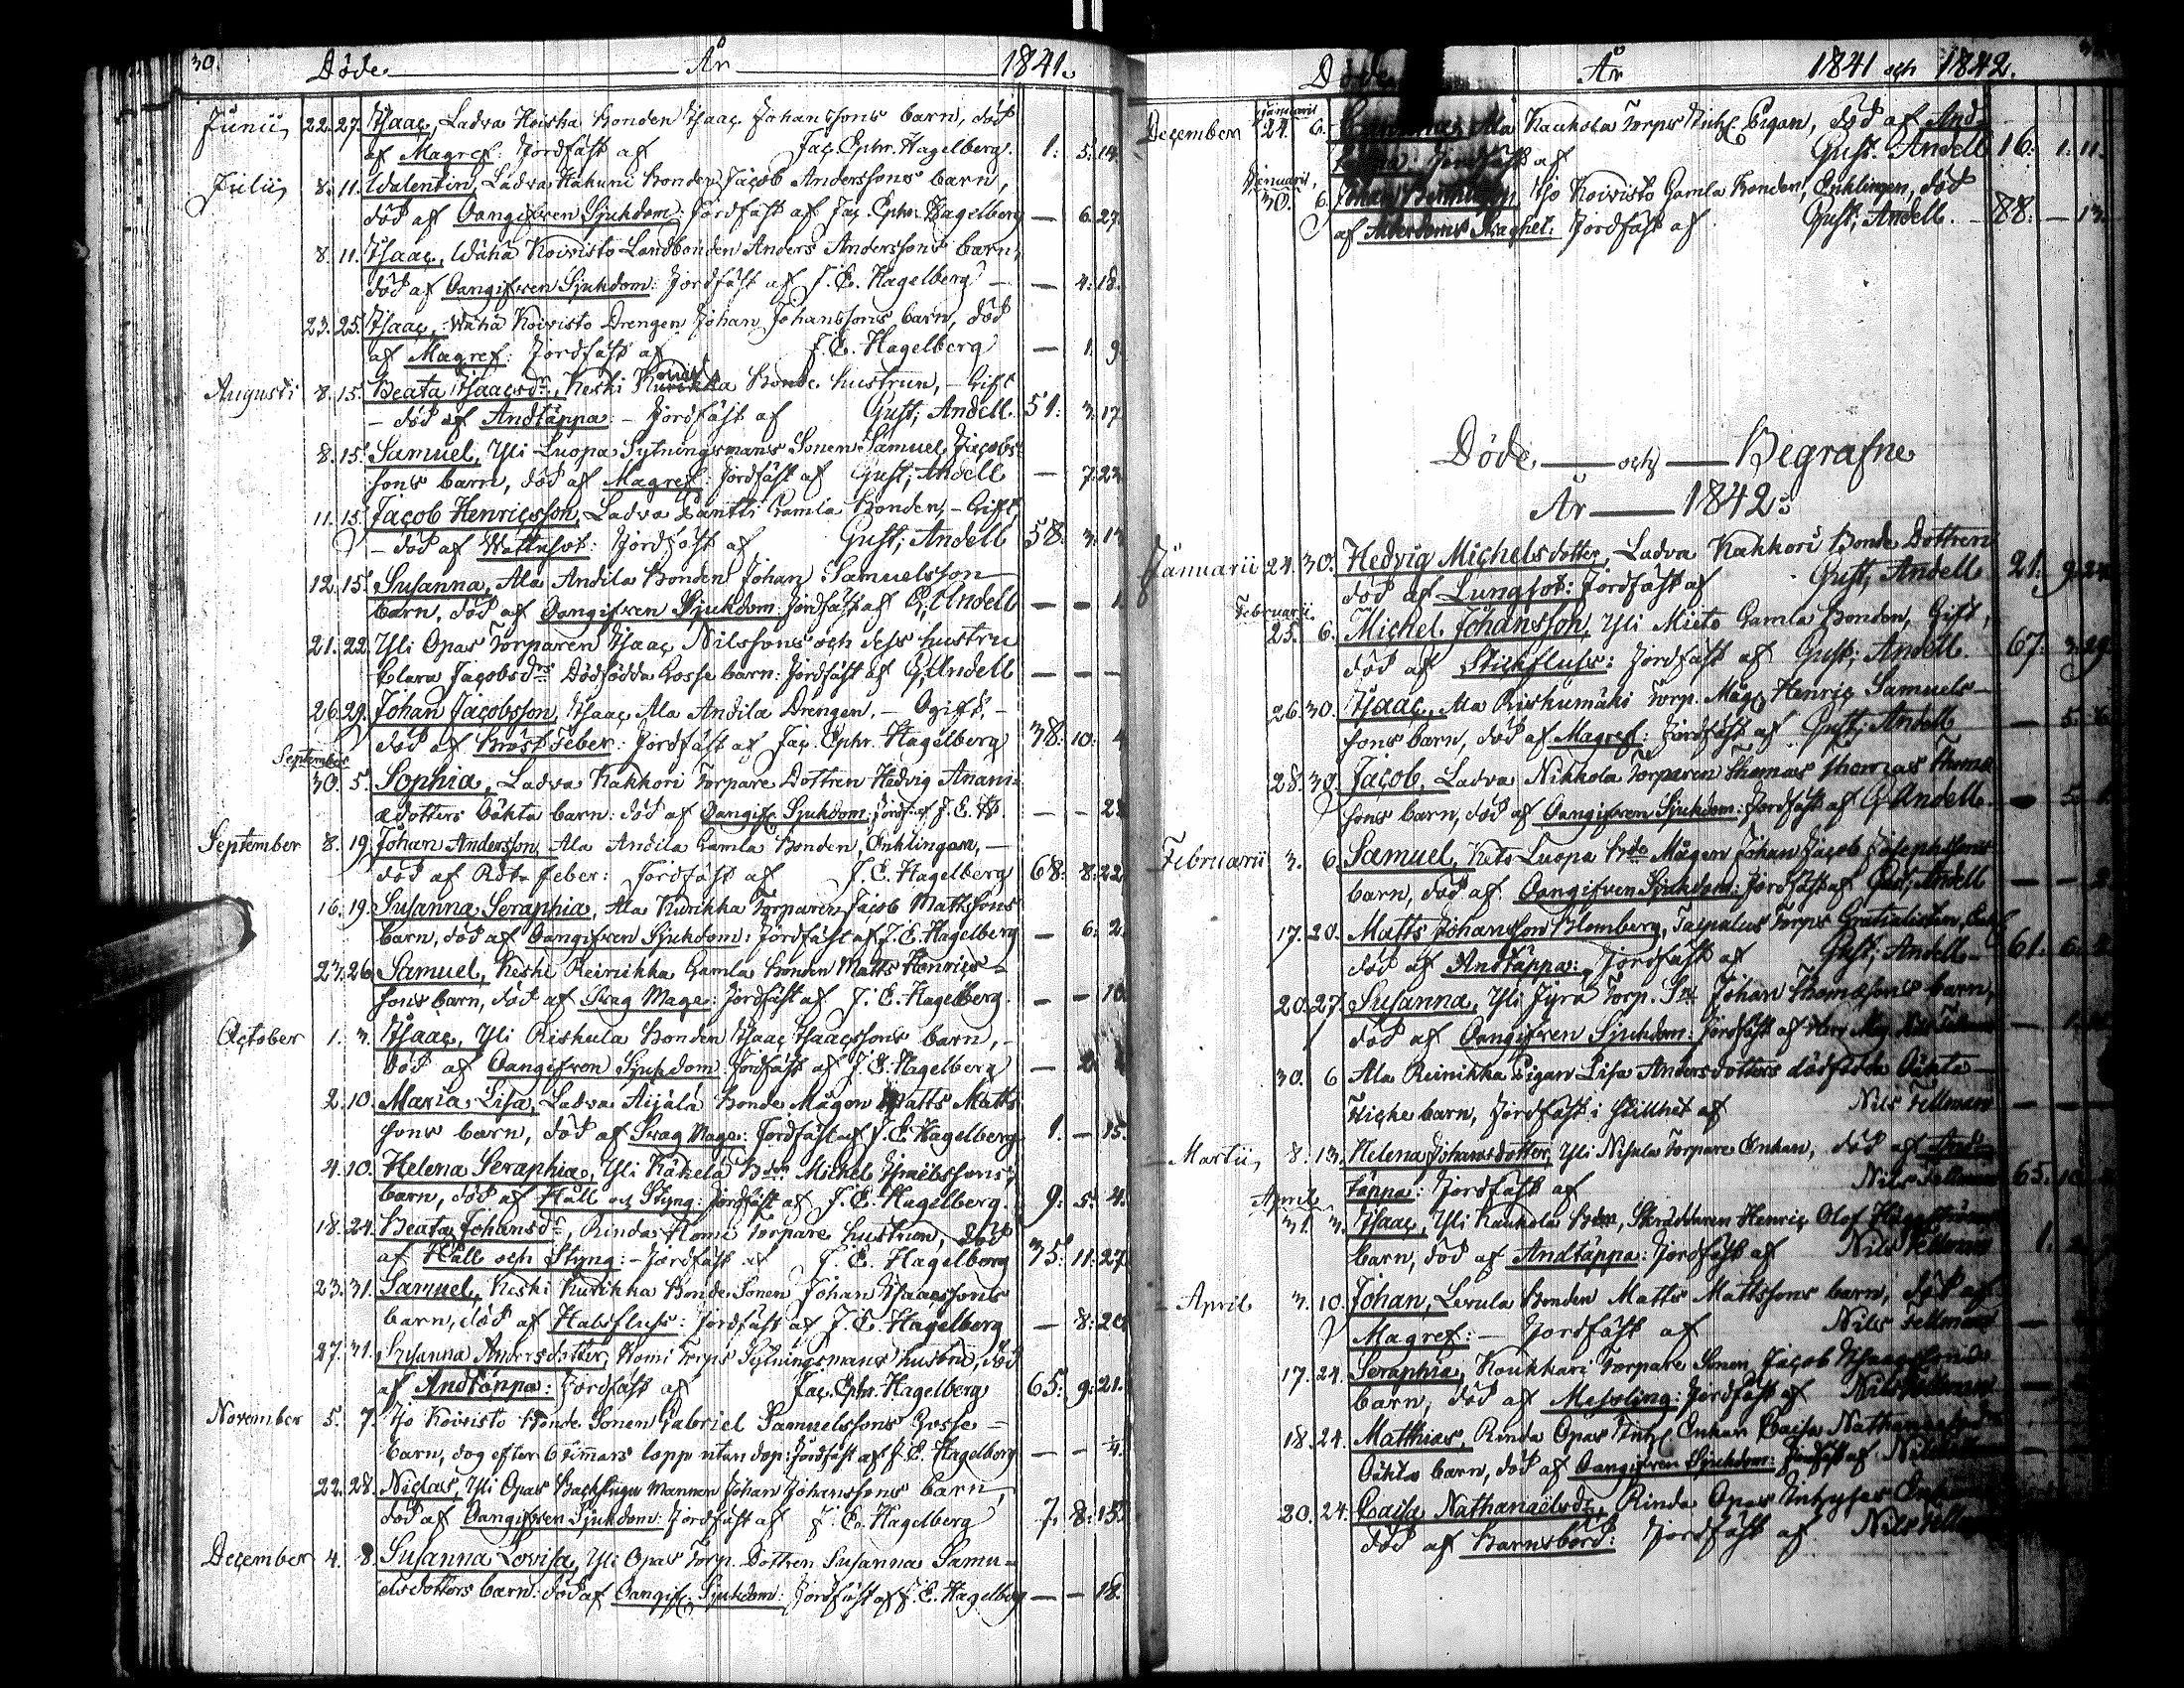 30. Döde År 1841.
Junii, 22. 27. Isaac, Ladva Hoiska Bonden Isaac Johanssons barn, död
af Magref: Jordfäst af Jac. Ephr. Hagelberg. 1: 5: 14
Julii, 8. 11. Walentin, Ladva Hakuni Bonden Jacob Anderssons barn,
död af Oangifven Sjukdom: Jordfäst af Jac. Ephr. Hagelberg — 6: 27
8. 11. Isaac, Wähä Koivisto Landbonden Anders Anderssons barn,
död af Oangifven Sjukdom: Jordfäst af J. E. Hagelberg — — 4: 18.
23. 25. Isaac, Wähä Koivisto Drengen Johan Johanssons barn, död
af Magref: Jordfäst af J. E. Hagelberg — 1. 9
Augusti 8. 15. Beata Isaacsdr, Keski Bonde hustrun, — Gift
— död af Andtäppa: — Jordfäst af Gust; Andell 51: 3: 17
8. 15. Samuel, Yli Luopa Sytningsmans Sonen Samuel Jacobs
sons barn, död af Magref: Jordfäst af Gust; Andell — 7: 23
11. 15. Jacob Henricsson, Ladva Pantti Gamla Bonden, — Gift
— död af Wattusot: Jordfäst af Gust; Andell 58: 3: 13
12. 15. Susanna, Ala Andila Bonden Johan Samuelsson
barn, död af Oangifven Sjukdom: Jordfäst af G; Andell — — 1
21. 22. Yli Opas Torparen Isaac Nilssons och dess hustru
Clara Jacobsdrs Dödfödda Gosse barn: Jordfäst af G; Andell — — —
26. 29. Johan Jacobsson, Isaac Ala Andila Drengen, — Ogift, —
död af Bröst Feber: Jordfäst af Jac. Ephr. Hagelberg 38: 10: 4
September
30. 5. Sophia, Ladva Kakkori Torpare Dottren Hedvig Anani=
ædotters Oäkta barn: död af Oangif. Sjukdom: Jordf. af J. E. H. — — 23
September 8. 19. Johan Andersson, Ala Andila Gamla Bonden, Enklingen, —
död af Röt-feber: Jordfäst af J. E. Hagelberg 68: 8: 22
16. 19. Susanna Seraphia, Ala Kurikka Torparen Jacob Mattssons
barn, död af Oangifven Sjukdom: Jordfäst af J. E. Hagelberg — 6: 2
23. 26. Samuel, Keski Reinikka Gamla Bonden Matts Henrics=
sons barn, död af Svag Mage: Jordfäst af J. E. Hagelberg. — — 10
October 1. 3. Isaac, Yli Riskula Bonden Isaac Isaacssons barn, —
död af Oangifven Sjukdom: Jordfäst af J. E. Hagelberg —
2. 10. Maria Lisa, Ladva Aijälä Bonde Mågen Matts Matts
sons barn, död af Svag Mage: Jordfäst af J. E. Hagelberg 1. — 15.
4. 10. Helena Seraphia, Yli Käkelä Bdn Michel Ismelssons
barn, död af Håll och Styng: Jordfäst af J. E. Hagelberg. 9: 5: 4.
18. 24. Beata Johansdr, Rinda Homi Torpare hustrun, död
af Håll och Styng: — Jordfäst af J. E. Hagelberg 35: 11: 27
23. 31. Samuel, Keski Kurikka Bonde Sonen Johan Isaacssons
barn, död af Halsfluss: Jordfäst af J. E. Hagelberg — 8: 20
27. 31. Susanna Andersdotter, Homi Torps Sytningsmans hustru, död
af Andtäppa: Jordfäst af Jac. Ephr. Hagelberg 65: 9: 21.
November 5. 7. Iso Koivisto Bonde Sonen Gabriel Samuelssons Gosse —
barn, dog efter 6 timmars lopp utan dop: Jordfäst af J. E. Hagelberg — — ¼.
22. 28. Niclas, Yli Opas Backstugu Mannen Johan Johanssons barn,
död af Oangifven Sjukdom: Jordfäst af J. E. Hagelberg 7. 8: 13
December 4. 8. Susanna Lovisa, Yli Opas Torp. Dottren Susanna Samu=
elsdotters barn: död af Oangif. Sjukdom: Jordfäst af J. E. Hagelberg — — 18.
Döde År 1841 och 1842.
December 24. Januarii 6. Ala Kaukola Torps Inh. Pigan, död af And-
Jordfäst af Gust. Andell 16: 1: 11.
Januarii,
30. 6. Johan Iso Koivisto Gamla Bonden, Enklingen, död
af Ålderdoms Svaghet: Jordfäst af Gust; Andell. — 88: — 13.
Döde — och — Begrafne
År — 1842:
Januarii 24. 30. Hedvig Michelsdotter, Ladva Kakkori Bonde Dottren
död af Lungsot: Jordfäst af Gust; Andell 21: 9: 24
Februarii
25. 6. Michel Johansson, Yli Mieto Gamla Bonden, Gift,
död af Stickfluss: Jordfäst af Gust; Andell. 67: 3: 29
26. 30. Isaac, Ala Riskumäki Torp. Måg Henric Samuels—
sons barn, död af Magref: Jordfäst af Gust; Andell — 5:
28. 30. Jacob, Ladva Nikkola Torparen Thomas Thomas
sons barn, död af Oangifven Sjukdom: Jordfäst af G Andell. — 5:
Februarii 3. 6. Samuel, Luopa Bde Mågen Johan Jacob Josephsons
barn, död af Oangifven Sjukdom: Jordfäst af Gust; Andell — —
17. 20. Matts Johansson Blomberg, Taipalus Torps Gratialisten,
död af Andtäppa: Jordfäst af Gust; Andell — 61: 6:
20. 27. Susanna, Yli Jyrä Torp. Johan Thomassons barn,
död af Oangifven Sjukdom: Jordfäst af Herr Mag. Nils Fellman — 1:
30. 6 Ala Reinikka Pigan Lisa Andersdotters dödfödda Oäkta —
Flicke barn, Jordfäst i stillhet af Nils Fellman — —
Martii, 8. 13. Helena Johansdotter, Yli Nisula Torpare Enkan, död af Andt=
täppa: Jordfäst af Nils Fellman 65: 10
April
31. 3. Isaac, Yli Kaukola Skräddaren Henric Olof
barn, död af Andtäppa: Jordfäst af Nils Fellman 1.
April 3. 10. Johan, Levula Bonden Matts Mattssons barn, död af
Magref: — Jordfäst af Nils Fellman —
17. 24. Seraphia, Koukkari Torpare Sonen Jacob Isaacssons
barn, död af Messling: Jordfäst af Nils Fellman —
18. 24. Matthias, Rinda Opas Inh. Enkan Caisa
Oäkta barn, död af Oangifven Sjukdom: Jordfäst af
20. 24. Caisa Nathanaelsdr, Rinda Opas Inhyses
död af Barnsbörd: Jordfäst af Nils